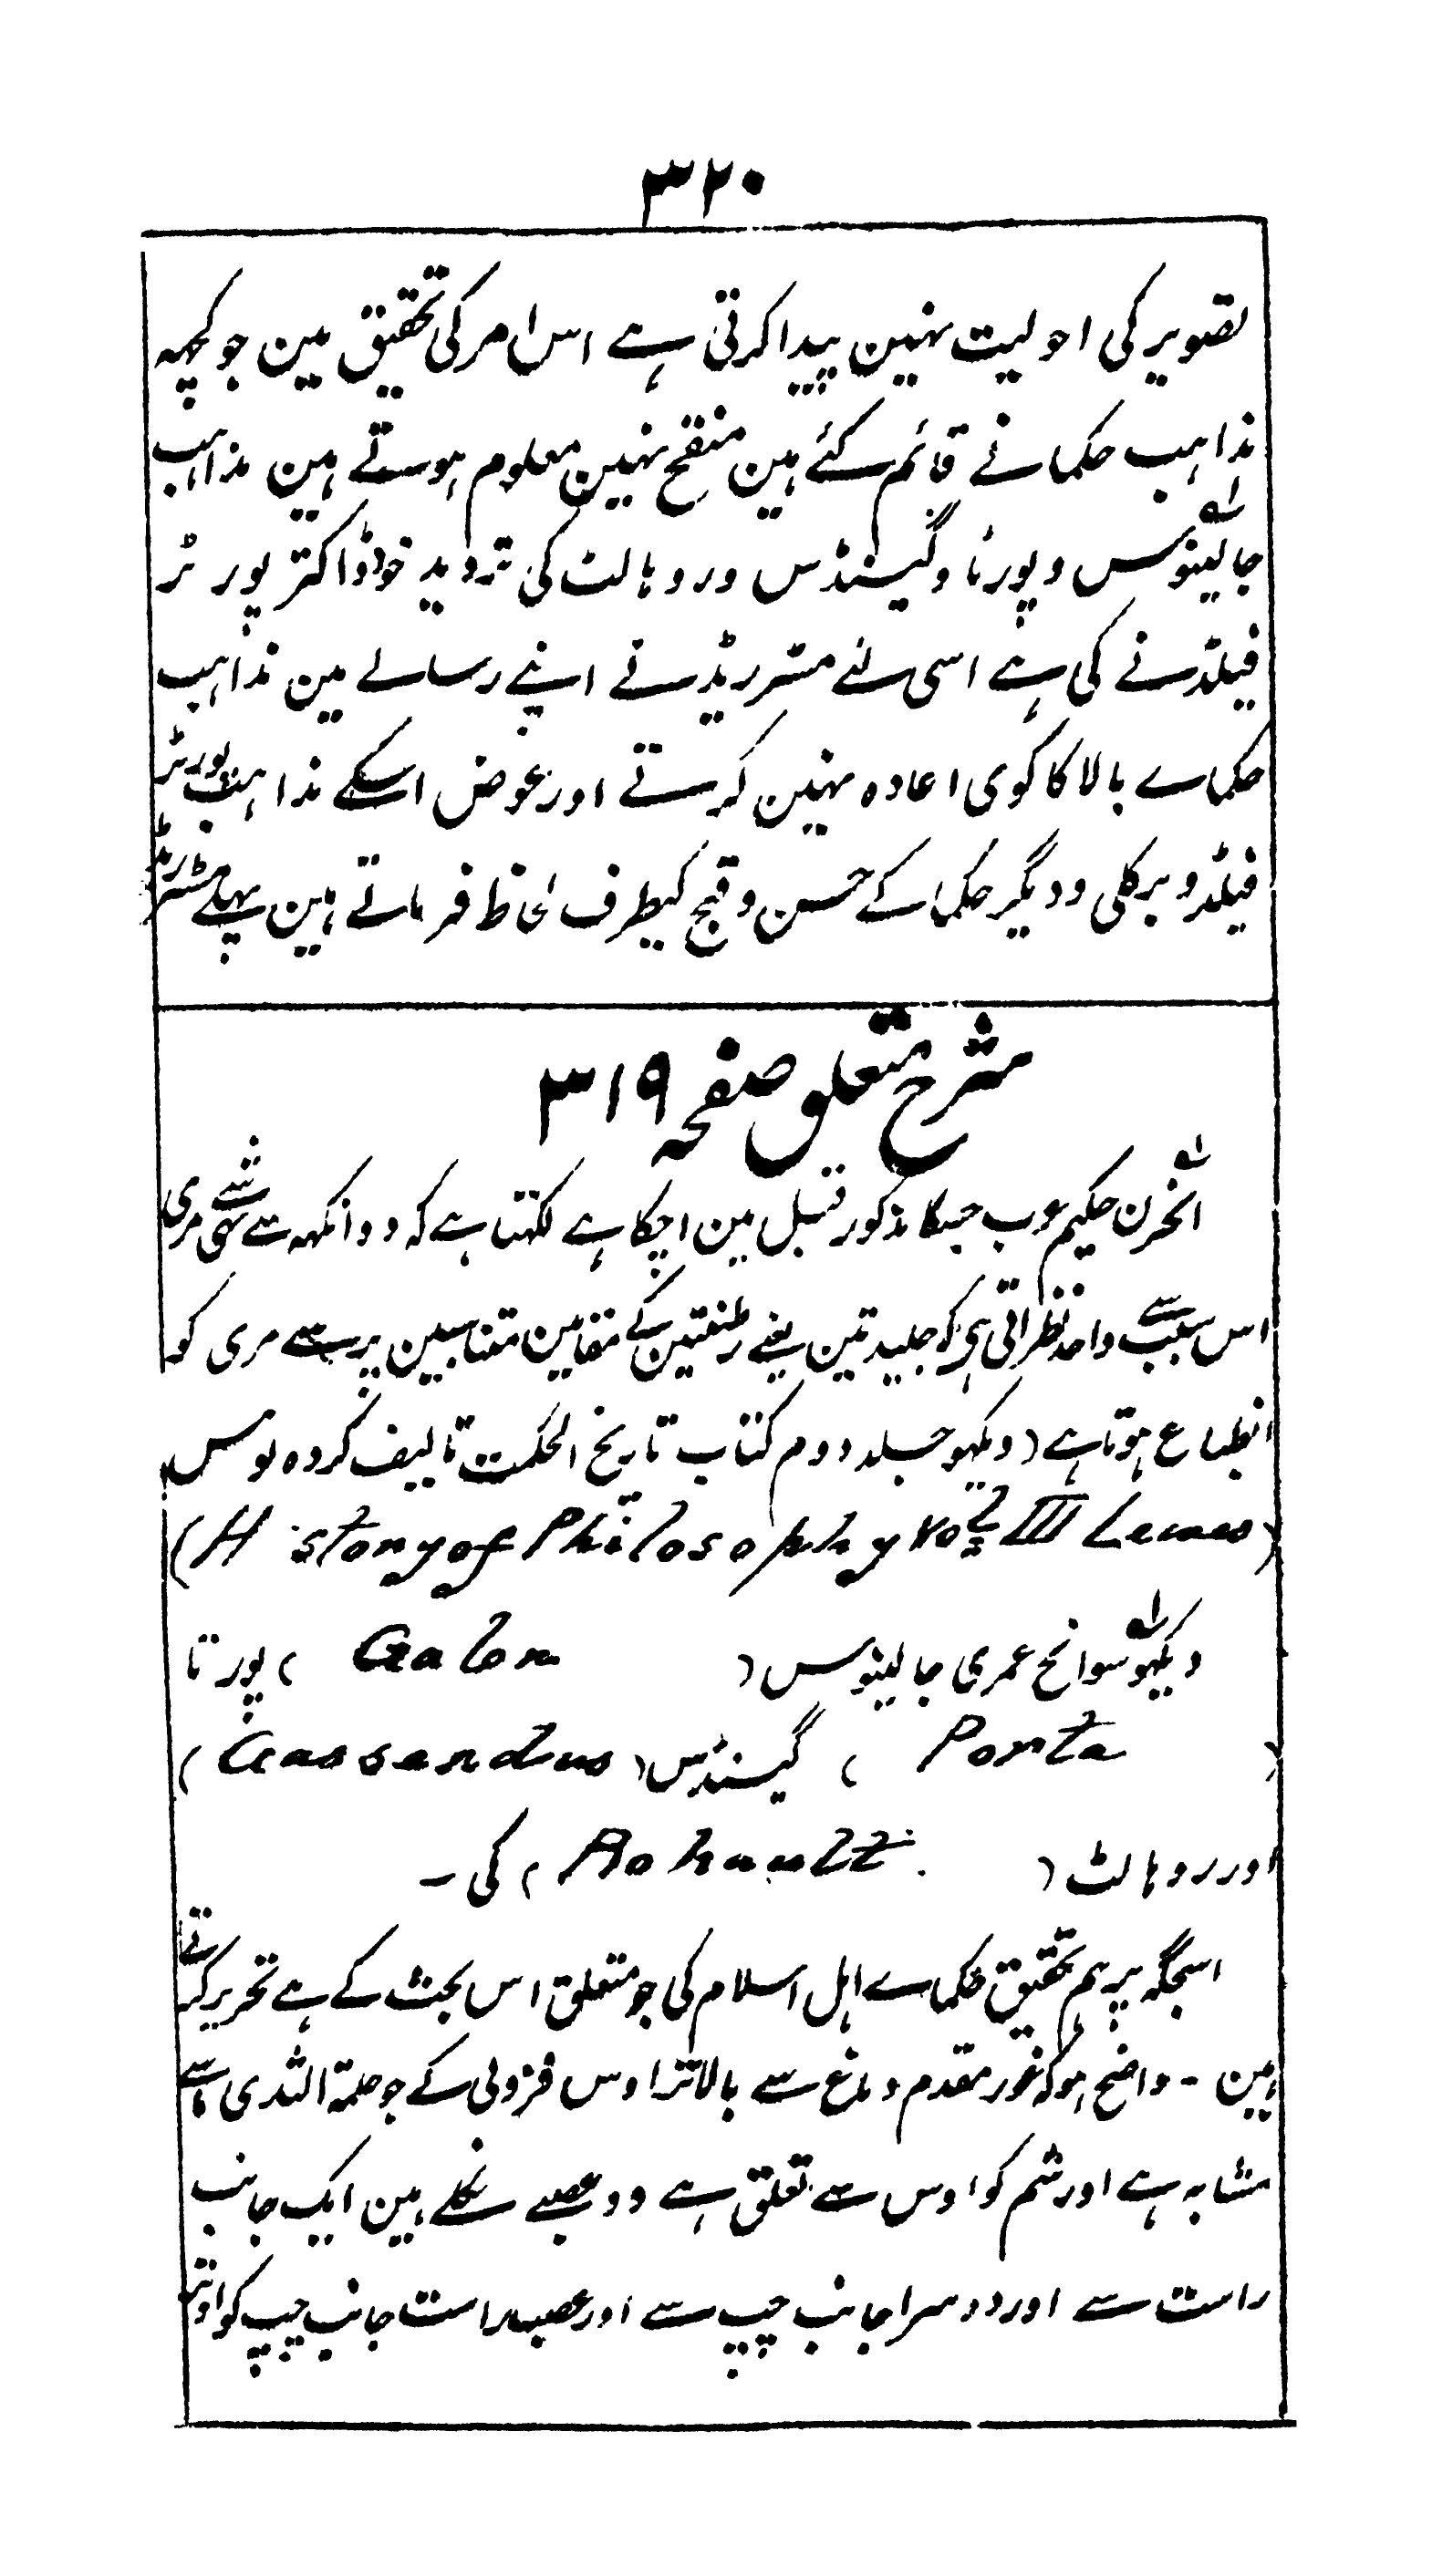 ۳۲۰
تصویر کی احولیت نہین پیدا کرتی ہے اس امر کی تحقیق مین جو کچہہ
مذاہب حکما نے قائم کئے ہین منقح نہین معلوم ہوتے ہین مذاہب
جالینوس و پورٹا و گیسنڈس و روہالٹ کی تردید خود ڈاکتر پورٹر
فیلڈ نے کی ہے اسی لئے مسٹر ریڈ نے اپنے رسالے مین مذاہب
حکماے بالا کا کوی اعادہ نہین کرتے اور عوض اسکے مذاہب پورٹر
فیلڈ و برکلی و دیگر حکما کے حسن و قبح کیطرف لحاظ فرماتے ہین پہلے مسٹر
شرح متعلق صفحہ ۳۱۹
لہ الخزن حکیم عرب جسکا مذکور قبل مین اچکا ہے لکہتا ہے کہ دو انکہہ سے شے مری
اس سبب سے واحد نظر اتی ہی کہ جلیدتین یعنے رطنقتین کے مقامین متناسبین پر شے مری کو
انطباع ہوتا ہے (دیکہو جلد دوم کتاب تاریخ الحکمت تالیف کردہ لوس
(History of Philosophy Vol III Lewes)
لہ دیکہو سوانح عمری جالینوس (Galen) پورتا
(Porta) گیسنڈس (Gassendus)
اور روہالٹ (Rohault) کی ۔
اسجگہ پر ہم تحقیق حکماے اہل اسلام کی جو متعلق اس بحث کے ہے تحریر کرتے
ہین - واضح ہو کہ غور مقدم دماغ سے بالاتر اوس فزونی کے جو حلمۃ الثدی کے
مشابہ ہے اور شم کو اوس سے تعلق ہے دو عصبے نکلے ہین ایک جانب
راست سے اور دوسرا جانب چپ سے اور عصبہ راست جانب چپ کو